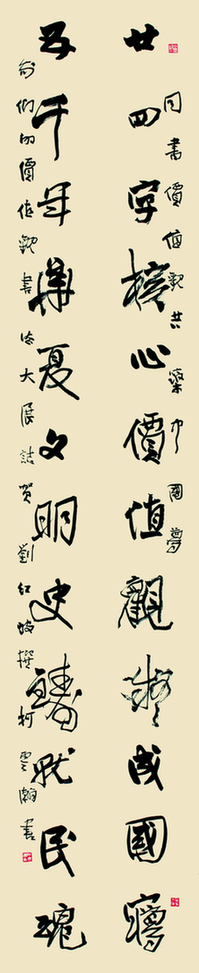 同書價值觀共築中國夢
廿四字核心價值觀凝成國夢
五千年華夏文明史鑄就民魂
我们的價值觀書法大展誌賀劉紅撰柯雲瀚書